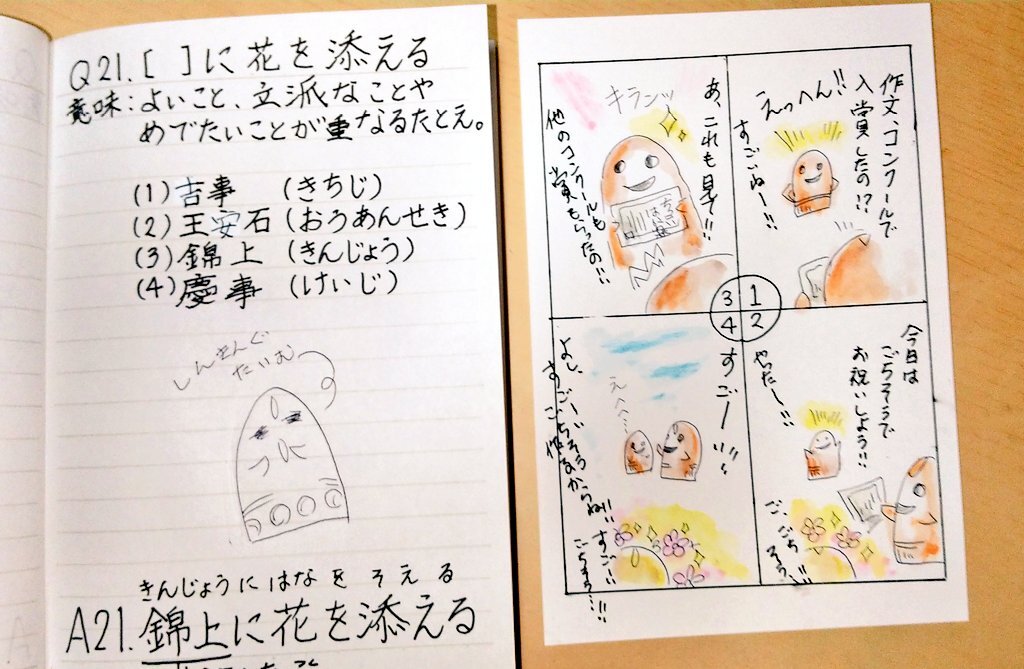 Q21.[ ]に花を添える
意味:よいこと、立派なことや
めでたいことが重なるたとえ。
(1)吉事 (きちじ)
(2)王安石(おうあんせき)
(3)錦上 (きんじょう)
(4)慶事 (けいじ)
しんきんぐ
たいむ
きんじょうにはなをそえる
A21.錦上に花を添える
作文、コンクールで
入賞したの!?
えっへん!!
すごいねー!!
1
今日は
ごちそうで
お祝いしよう!!
やったー!!
ご、ごち
そう…
2
あ、これも見て!!
キランッ
他のコンクールも
賞もらったの!!
3
すごーいっ!!
えへへ…
よし、
すごーいごちそう
作るからね!!
すごい
ごちそう…!!
4